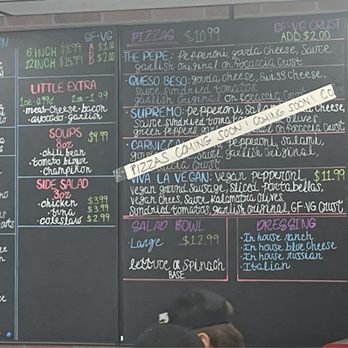 GF-VG
6 INCH $8.99 A $1.00
12 INCH $15.99 B $2.00
LITTLE EXTRA
1oz-0.99¢ 2oz-1.99
meat-cheese-bacon
avocado-garlish
SOUPS $4.99
8oz
chili bean
tomato bisque
champiñon
SIDE SALAD
3oz
chicken $3.99
tuna $3.99
coleslaw $2.99
PIZZAS $10.99
GF-VG CRUST
ADD $2.00
THE PEPE: pepperoni, gouda cheese, sauce
garlish original on focaccia crust
QUESO BESO: gouda cheese, swiss cheese,
sauce, sundried tomatos,
garlish original on focaccia crust
SUPREMO: pepperoni, salami,
green peppers
PIZZAS COMING SOON! COMING SOON! CO
pepperoni, salami,
garlish original,
VIVA LA VEGAN: vegan pepperoni, $11.99
vegan ground sausage, sliced portabellas,
vegan chees, sauce kalamatra olives,
sundried tomatos, garlish original, GF-VG crust
SALAD BOWL
Large $12.99
lettuce or spinach
BASE
DRESSING
In house ranch
In house blue cheese
In house russian
Italian